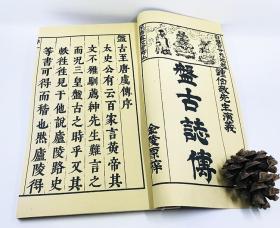 鍾伯敬先生演義
盤古誌傳
金陵原梓
盤古至唐虞傳序
太史公有云百家言黃帝其
文不雅馴薦紳先生難言之
而况三皇盤古之時乎又其
軼往往見于他說廬陵路史
等書可得而稽也然廬陵得